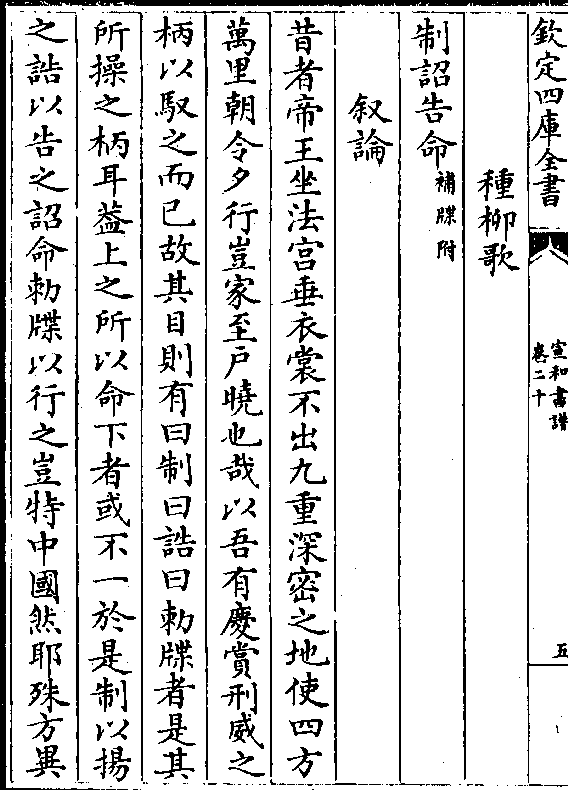 欽定四庫全書
宣和書譜
卷二十
五
種柳歌
制詔告命補牒附
叙論
昔者帝王坐法宫垂衣裳不出九重深密之地使四方
萬里朝令夕行豈家至戶曉也哉以吾有慶賞刑威之
柄以馭之而已故其目則有曰制曰誥曰勅牒者是其
所操之柄耳葢上之所以命下者或不一於是制以揚
之誥以告之詔命勅牒以行之豈特中國然耶殊方異